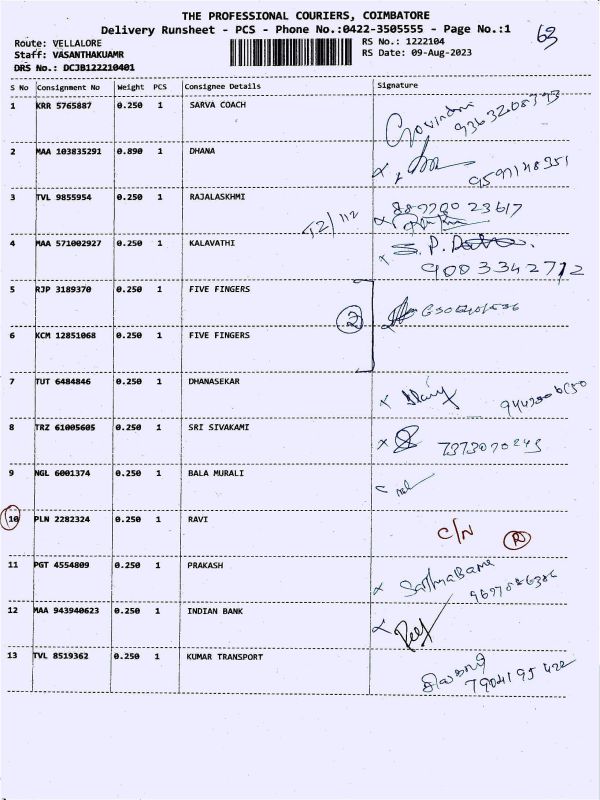 THE PROFESSIONAL COURIERS, COIMBATORE
Delivery Runsheet - PCS - Phone No.:0422-3505555 - Page No.:1
63
Route: VELLALORE
RS No.: 1222104
Staff: VASANTHAKUAMR
RS Date: 09-Aug-2023
DRS No.: DCJB122210401
S No Consignment No Weight PCS Consignee Details Signature
1 KRR 5765887 0.250 1 SARVA COACH
Govindan
9363208393
2 MAA 103835291 0.890 1 DHANA
9597148351
3 TVL 9855954 0.250 1 RAJALASKHMI
T2/112
4 MAA 571002927 0.250 1 KALAVATHI
S. P.
9003342712
5 RJP 3189370 0.250 1 FIVE FINGERS
2
6 KCM 12851068 0.250 1 FIVE FINGERS
7 TUT 6484846 0.250 1 DHANASEKAR
8 TRZ 61005605 0.250 1 SRI SIVAKAMI
7373070243
9 NGL 6001374 0.250 1 BALA MURALI
10 PLN 2282324 0.250 1 RAVI
C/N R
11 PGT 4554809 0.250 1 PRAKASH
Sathyabama
12 MAA 943940623 0.250 1 INDIAN BANK
13 TVL 8519362 0.250 1 KUMAR TRANSPORT
7904195422